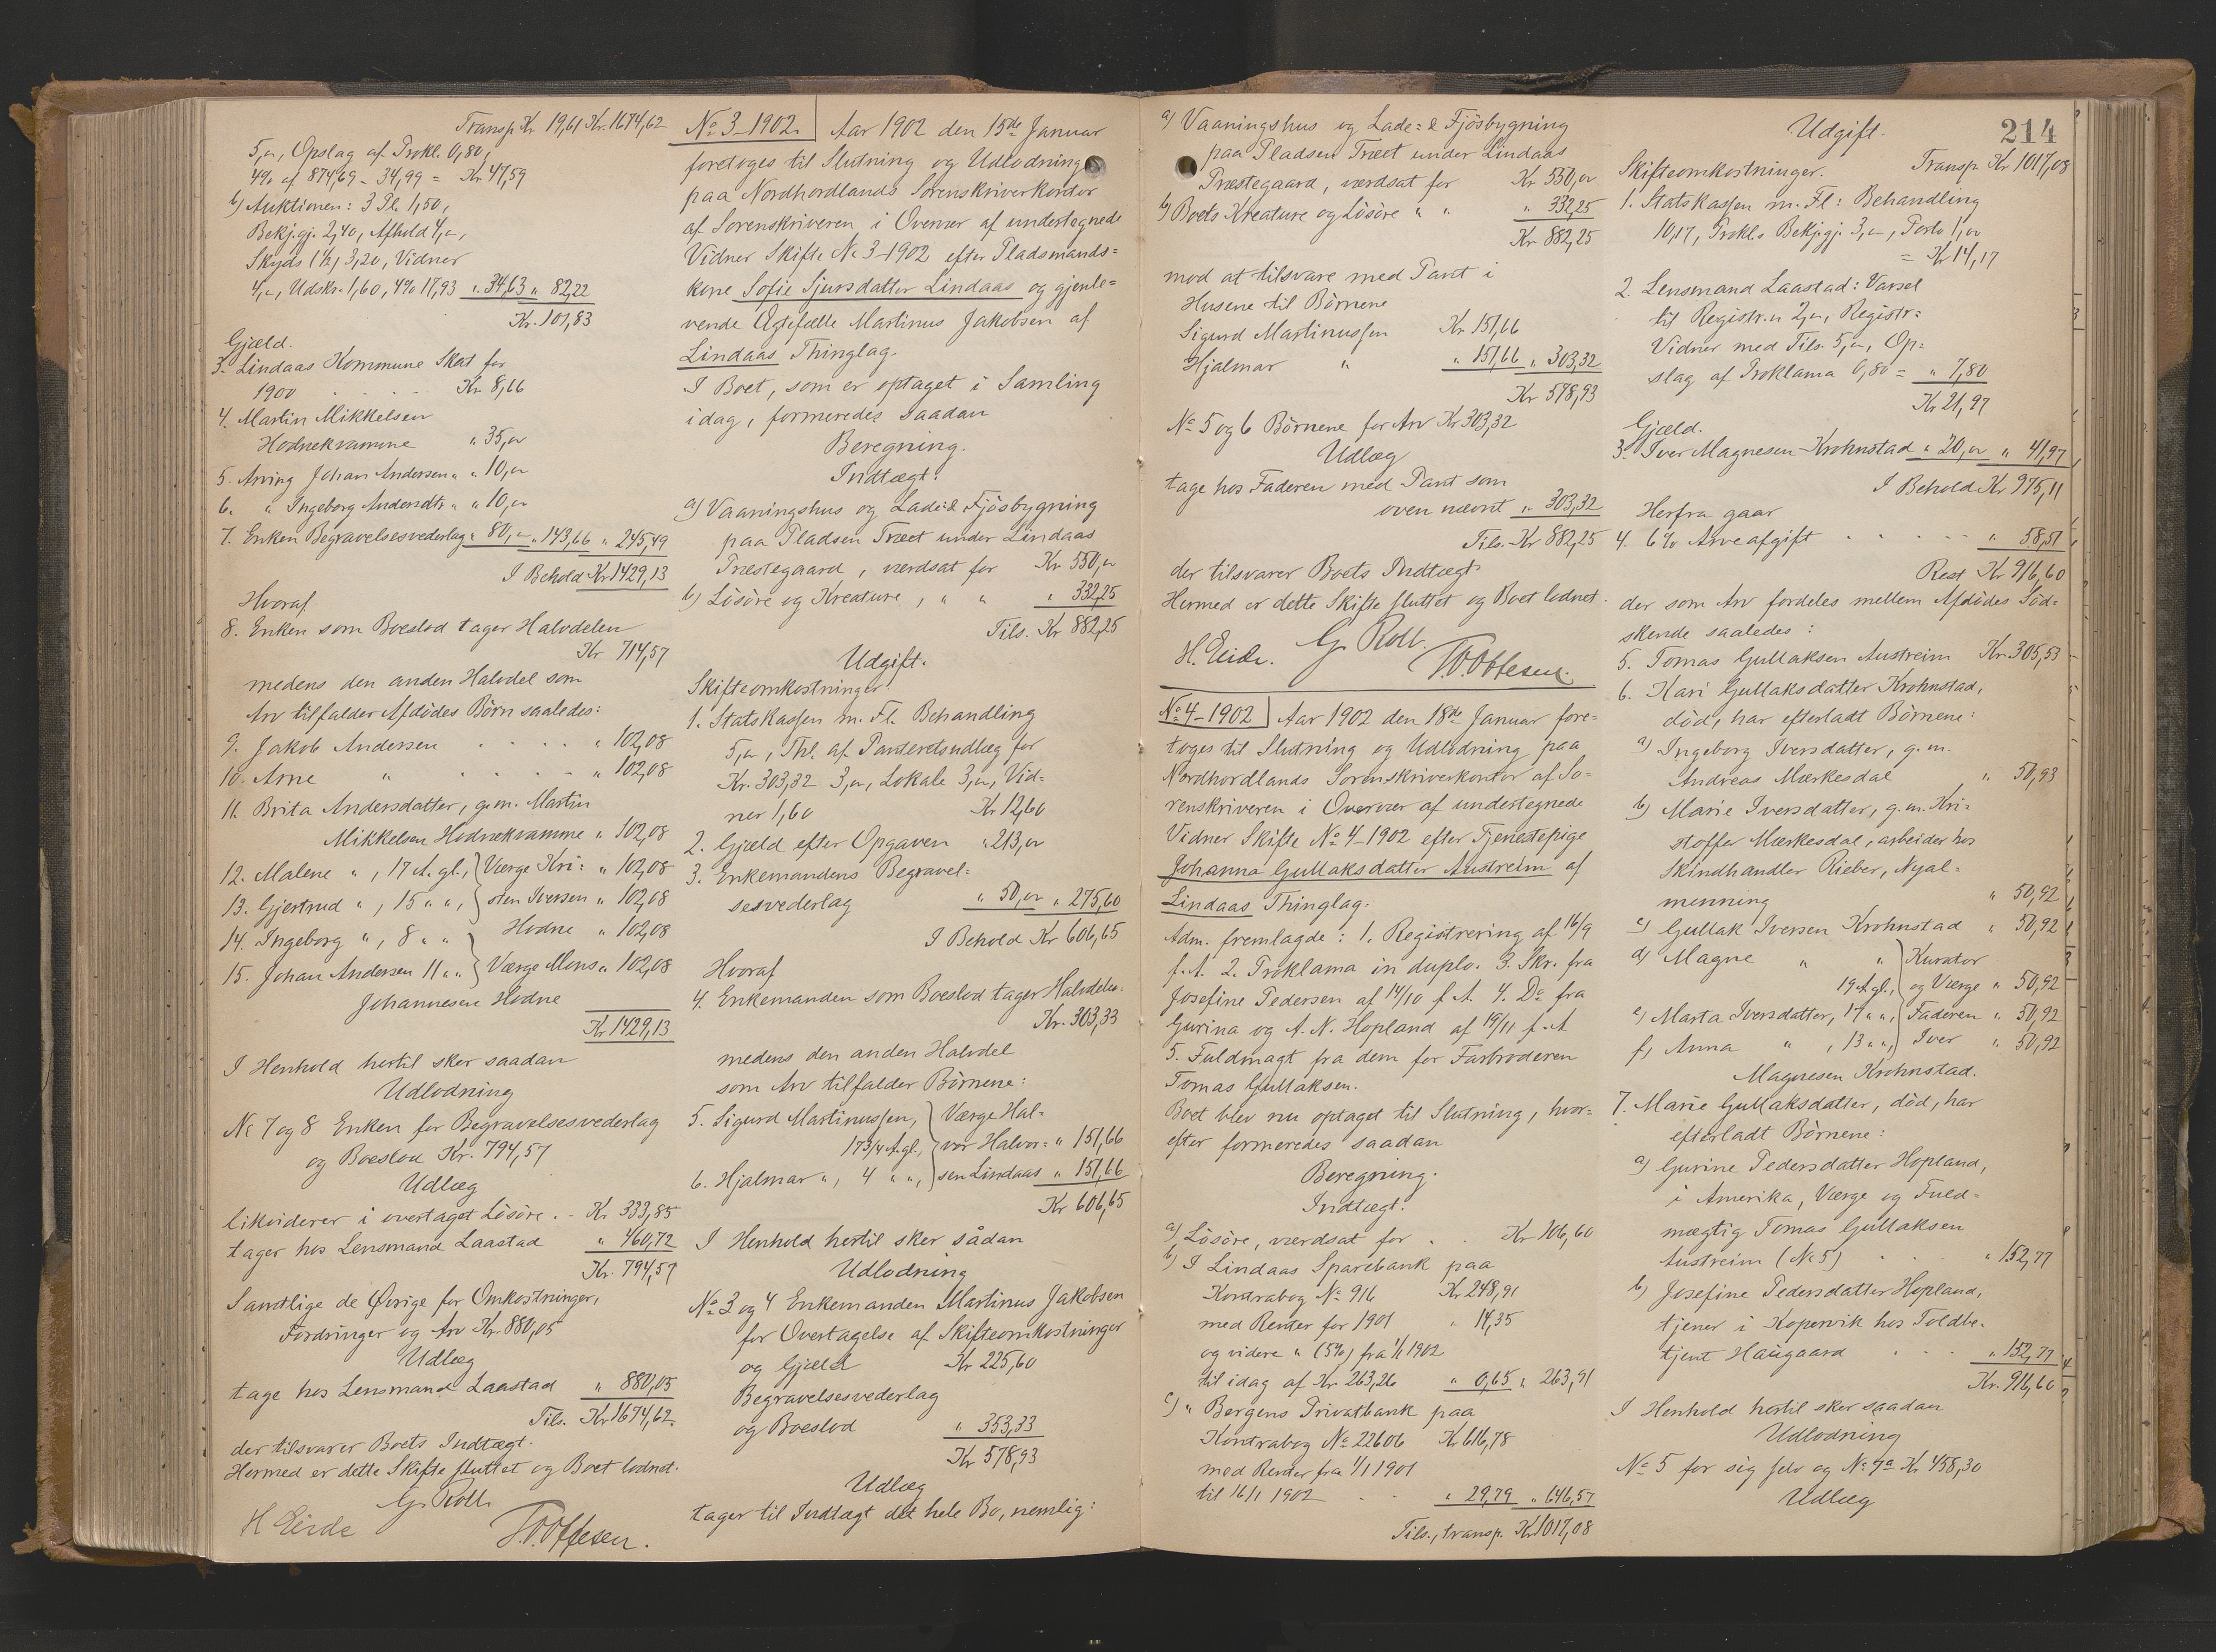 Transp. Kr 19,61 Kr. 1674,62
5,„, Opslag af Prokl. 0,80,
4% af 874,69 - 34,99 = Kr 47,59
b) Auktionen: 3 Pl. 1,50,
Bekj.gj. 2,40, Afhold 4,„,
Skyds (1 h) 3,20, Vidner
4,„, Udskr. 1,60, 4% 17,93 „ 34,63 „ 82,22
Kr. 101,83
Gjæld.
3. Lindaas Kommune Skat for
1900 . . . . Kr 8,66
4. Martin Mikkelsen
Hodnekvamme „ 35,„
5. Arving Johan Andersen „ „ 10,„
6. „ Ingeborg Andersdtr „ „ 10,„
7. Enken Begravelsesvederlag „ 80,„ „ 143,66 „ 245,49
I Behold Kr 1429,13
Hvoraf
8. Enken som Boeslod tager Halvdelen
Kr 714,57
medens den anden Halvdel som
Arv tilfalder Afdødes Børn saaledes:
9. Jakob Andersen . . . . „ 102,08
10. Arne „ . . . . „ 102,08
11. Brita Andersdatter, g.m. Martin
Mikkelsen Hodnekvamme „ 102,08
12. Malene „, 17 A. gl., Værge Kri- „ 102,08
13. Gjertrud „, 15 „ „, sten Iversen „ 102,08
14. Ingeborg „, 8 „ „ Hodne „ 102,08
15. Johan Andersen 11 „ „ Værge Mons „ 102,08
Johannesen Hodne
Kr 1429,13
I Henhold hertil sker saadan
Udlodning
No 7 og 8 Enken for Begravelsesvederlag
og Boeslod Kr. 794,57
Udlæg
likviderer i overtaget Løsøre . - Kr 333,85
tager hos Lensmand Laastad „ 460,72
Kr. 794,57
Samtlige de Øvrige for Omkostninger,
Fordringer og Arv Kr. 880,05
Udlæg
tage hos Lensmand Laastad „ 880,05
Tils. Kr 1674,62
der tilsvarer Boets Indtægt.
Hermed er dette Skifte sluttet og Boet lodnet.
G. Roll.
H Eide
T.O. Ottesen.
No 3-1902. Aar 1902 den 15de Januar
foretoges til Slutning og Udlodning
paa Nordhordlands Sorenskriverkontor
af Sorenskriveren i Overvær af undertegnede
Vidner Skifte No 3-1902 efter Pladsmands-
kone Sofie Sjursdatter Lindaas og gjenle-
vende Ægtefælle Martinus Jakobsen af
Lindaas Thinglag.
I Boet, som er optaget i Samling
idag, formeredes saadan
Beregning.
Indtægt:
a) Vaaningshus og Lade- & Fjøsbygning
paa Pladsen Træet under Lindaas
Præstegaard, værdsat for Kr 550,„
b) Løsøre og Kreature, „ „ „ 332,25
Tils. Kr 882,25
Udgift.
Skifteomkostninger.
1. Statskassen m. Fl. Behandling
5,„, Thl. af Panteretsudlæg for
Kr. 303,32 3,„, Lokale 3,„, Vid-
ner 1,60 Kr 12,60
2. Gjæld efter Opgaven „ 213,„
3. Enkemandens Begravel-
sesvederlag „ 50,„ „ 275,60
I Behold Kr 606,65
Hvoraf
4. Enkemanden som Boeslod tager Halvdelen
Kr. 303,33
medens den anden Halvdel
som Arv tilfalder Børnene:
5. Sigurd Martinussen, Værge Hal-
17 3/4 A. gl., vor Halvor- „ 151,66
6. Hjalmar „, 4 „ „, sen Lindaas „ 151,66
Kr 606,65
I Henhold hertil sker sådan
Udlodning
No 3 og 4 Enkemanden Martinus Jakobsen
for Overtagelse af Skifteomkostninger
og Gjæld Kr 225,60
Begravelsesvederlag
og Boeslod „ 353,33
Kr 578,93
Udlæg
tager til Indtægt det hele Bo, nemlig:
a) Vaaningshus og Lade- & Fjøsbygning
paa Pladsen Træet under Lindaas
Præstegaard, værdsat for Kr 550,„
b) Boets Kreature og Løsøre „ „ „ 332,25
Kr 882,25
mod at tilsvare med Pant i
Husene til Børnene
Sigurd Martinussen Kr 151,66
Hjalmar „ „ 151,66 „ 303,32
Kr 578,93
No 5 og 6 Børnene for Arv Kr 303,32
Udlæg
tage hos Faderen med Pant som
oven nævnt „ 303,32
Tils. Kr 882,25
der tilsvarer Boets Indtægt.
Hermed er dette Skifte sluttet og Boet lodnet.
H. Eide. G. Roll.
T.O. Ottesen.
No 4-1902 Aar 1902 den 18de Januar fore-
toges til Slutning og Udlodning paa
Nordhordlands Sorenskriverkontor af So-
renskriveren i Overvær af undertegnede
Vidner Skifte No 4-1902 efter Tjenestepige
Johanna Gullaksdatter Austreim af
Lindaas Thinglag.
Adm. fremlagde: 1. Registrering af 16/9
f.A. 2. Proklama in duplo. 3. Skr. fra
Josefine Pedersen af 14/10 f. A. 4. Do fra
Gurina og A. N. Hopland af 19/11 f. A
5. Fuldmagt fra dem for Farbroderen
Tomas Gullaksen.
Boet blev nu optaget til Slutning, hvor-
efter formeredes saadan
Beregning.
Indtægt.
a) Løsøre, værdsat for . . Kr 106,60
b) I Lindaas Sparebank paa
Kontrabog No 916 Kr 248,91
med Renter for 1901 „ 14,35
og videre „ (5%) fra 1/1 1902
til idag af Kr 263,26 „ 0,65 „ 263,91
c) „ Bergens Privatbank paa
Kontrabog No 22606 Kr 616,78
med Renter fra 1/1 1901
til 16/1 1902 . . „ 29,79 „ 646,57
Tils., transp. Kr 1017,08
214
Udgift.
Skifteomkostninger. Transp. Kr 1017,08
1. Statskassen m. Fl: Behandling
10,17, Prokl.s Bekj.gj. 3,„, Porto 1,„
= Kr 14,17
2. Lensmand Laastad: Varsel
til Registr.n 2,„, Registr-
Vidner med Tils. 5,„, Op-
slag af Proklama 0,80 = „ 7,80
Kr 21,97
Gjæld.
3. Iver Magnesen Krohnstad „ 20,„ „ 41,97
I Behold Kr 975,11
Herfra gaar
4. 6% Arveafgift . . . . . „ 58,51
Rest Kr 916,60
der som Arv fordeles mellem Afdødes Sød-
skende saaledes:
5. Tomas Gullaksen Austreim Kr 305,53
6. Kari Gullaksdatter Krohnstad,
død, har efterladt Børnene:
a) Ingeborg Iversdatter, g. m.
Andreas Mærkesdal „ 50,93
b) Marie Iversdatter, g. m. Kri-
stoffer Mærkesdal, arbeider hos
Skindhandler Rieber, Nyal-
menning „ 50,92
c) Gullak Iversen Krohnstad „ 50,92
d) Magne „ „ Kurator
19 A. gl., og Værge „ 50,92
e) Marta Iversdatter, 17 „ „, Faderen „ 50,92
f) Anna „, 13 „ „, Iver „ 50,92
Magnesen Krohnstad.
7. Marie Gullaksdatter, død, har
efterladt Børnene:
a) Gurine Pedersdatter Hopland,
i Amerika, Værge og Fuld-
mægtig Tomas Gullaksen
Austreim (No 5) . . „ 152,77
b) Josefine Pedersdatter Hopland,
tjener i Kopervik hos Toldbe-
tjent Haugaard . . . „ 152,77
Kr. 916,60
I Henhold hertil sker saadan
Udlodning
No 5 for sig selv og No 7a Kr 458,30
Udlæg